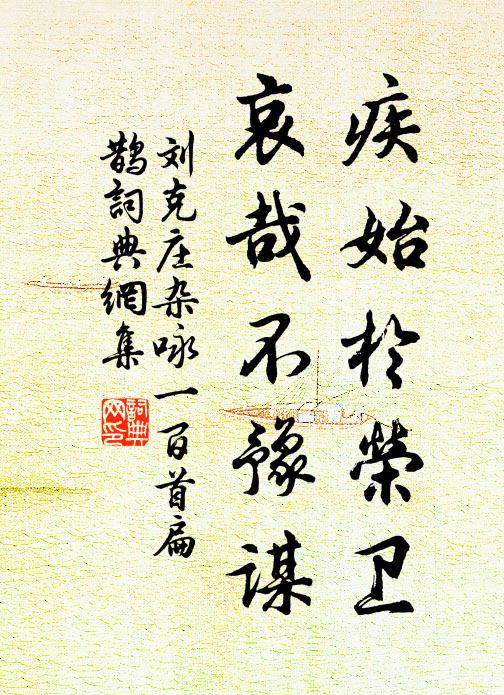 疾始於榮卫
哀哉不豫谋
刘克庄杂咏一百首扁
鹊詞典網集
詞典
网印